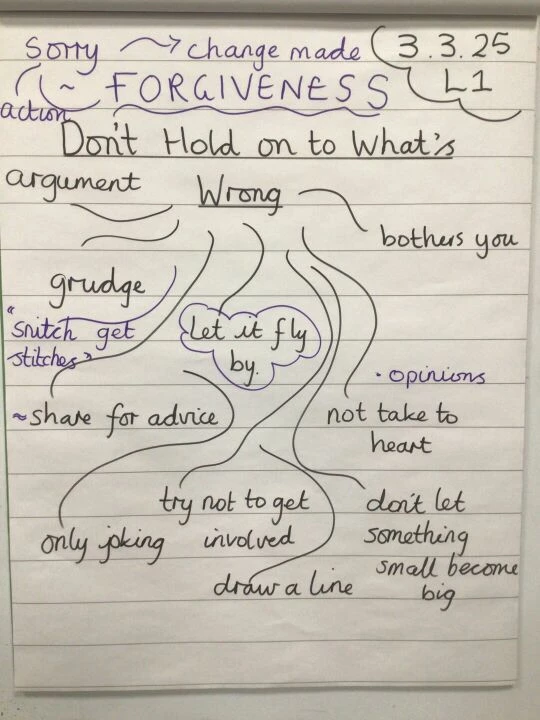 Sorry → change made
3.3.25
L1
~ FORGIVENESS
action
Don't Hold on to What's
Wrong
argument
bothers you
grudge
"snitch get
stitches"
Let it fly
by.
• opinions
~ share for advice
not take to
heart
only joking
try not to get
involved
don't let
something
small become
big
draw a line